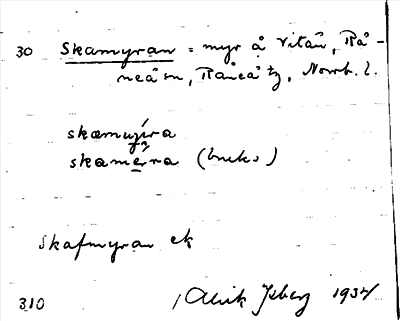 30 Skamyran = myr å Vitån, Rå-
neå sn, Råneå tg, Norrb. l.
skæmujra
skamérra (bruks)
Skafmyran ek
310 Alrik Isberg 1934